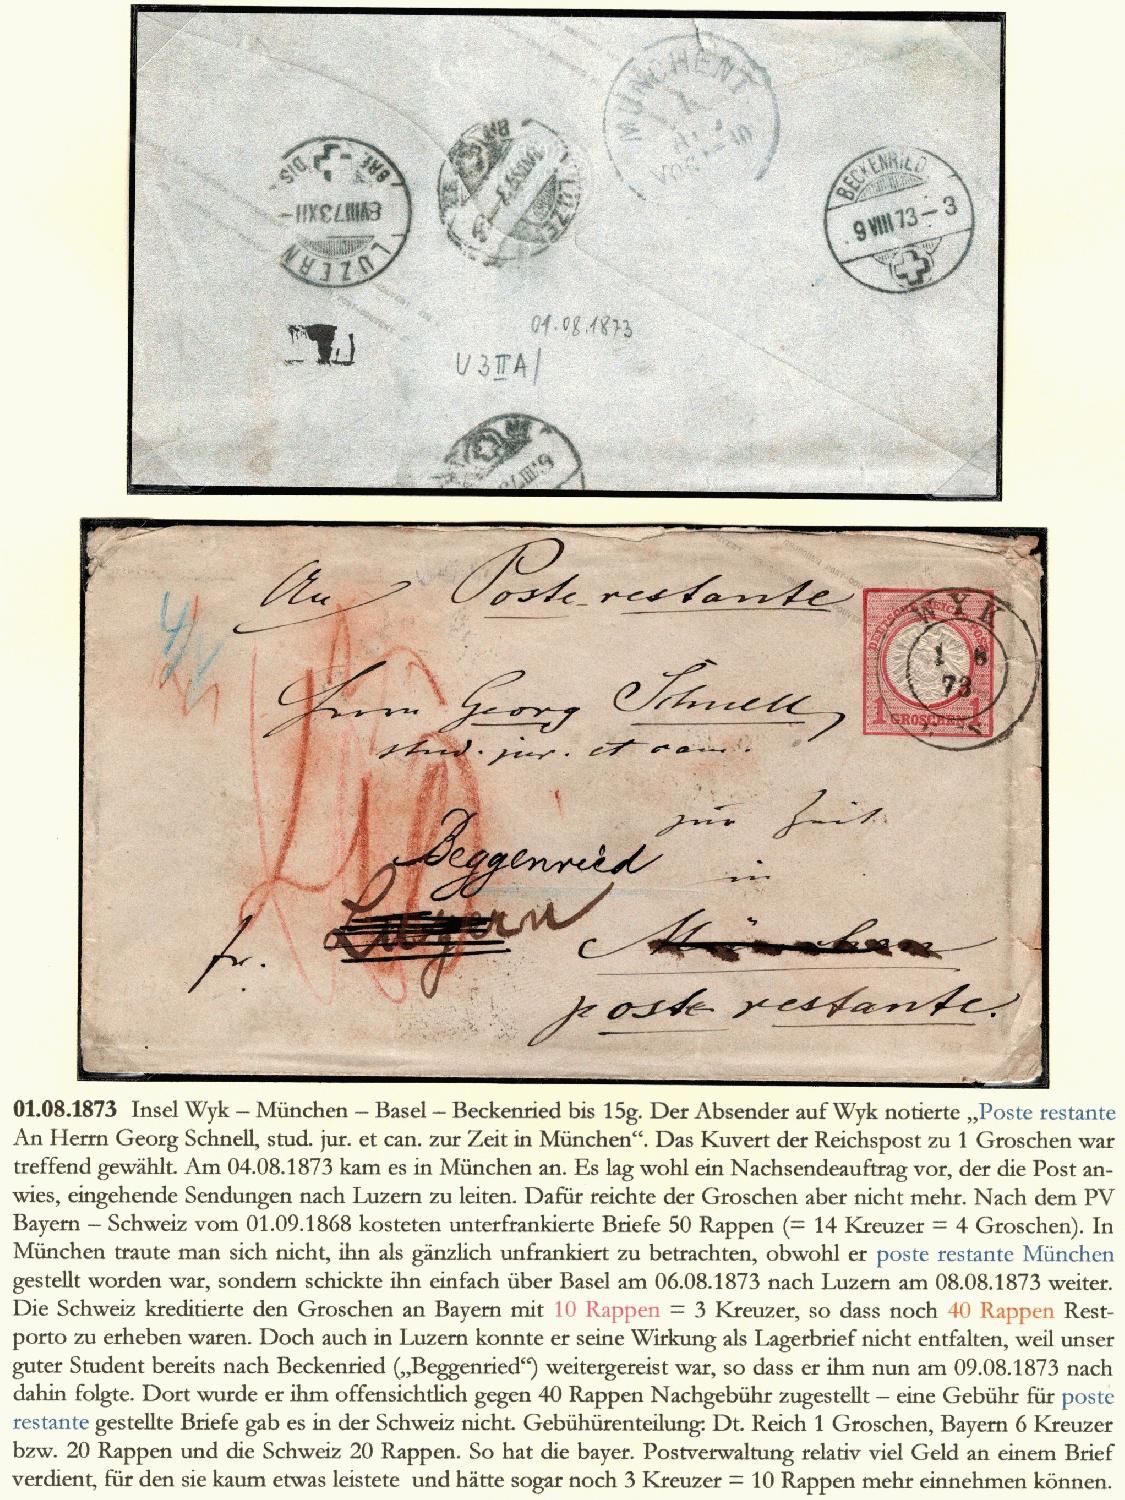 MÜNCHEN T
BRE DIS
8 VIII 73 XII
LUZERN
LUZERN
BECKENRIED
9 VIII 73 – 3
01.08.1873
U 3 II A/
An Poste restante
DEUTSCHE REICHS POST
1 GROSCHEN 1
WYK
1 8
73
Herrn Georg Schnell,
stud. jur. et can.
zur Zeit
Beggenried
in
Luzern
fr.
München
poste restante.
01.08.1873 Insel Wyk – München – Basel – Beckenried bis 15g. Der Absender auf Wyk notierte „Poste restante
An Herrn Georg Schnell, stud. jur. et can. zur Zeit in München“. Das Kuvert der Reichspost zu 1 Groschen war
treffend gewählt. Am 04.08.1873 kam es in München an. Es lag wohl ein Nachsendeauftrag vor, der die Post an-
wies, eingehende Sendungen nach Luzern zu leiten. Dafür reichte der Groschen aber nicht mehr. Nach dem PV
Bayern – Schweiz vom 01.09.1868 kosteten unterfrankierte Briefe 50 Rappen (= 14 Kreuzer = 4 Groschen). In
München traute man sich nicht, ihn als gänzlich unfrankiert zu betrachten, obwohl er poste restante München
gestellt worden war, sondern schickte ihn einfach über Basel am 06.08.1873 nach Luzern am 08.08.1873 weiter.
Die Schweiz kreditierte den Groschen an Bayern mit 10 Rappen = 3 Kreuzer, so dass noch 40 Rappen Rest-
porto zu erheben waren. Doch auch in Luzern konnte er seine Wirkung als Lagerbrief nicht entfalten, weil unser
guter Student bereits nach Beckenried („Beggenried“) weitergereist war, so dass er ihm nun am 09.08.1873 nach
dahin folgte. Dort wurde er ihm offensichtlich gegen 40 Rappen Nachgebühr zugestellt – eine Gebühr für poste
restante gestellte Briefe gab es in der Schweiz nicht. Gebühürenteilung: Dt. Reich 1 Groschen, Bayern 6 Kreuzer
bzw. 20 Rappen und die Schweiz 20 Rappen. So hat die bayer. Postverwaltung relativ viel Geld an einem Brief
verdient, für den sie kaum etwas leistete und hätte sogar noch 3 Kreuzer = 10 Rappen mehr einnehmen können.